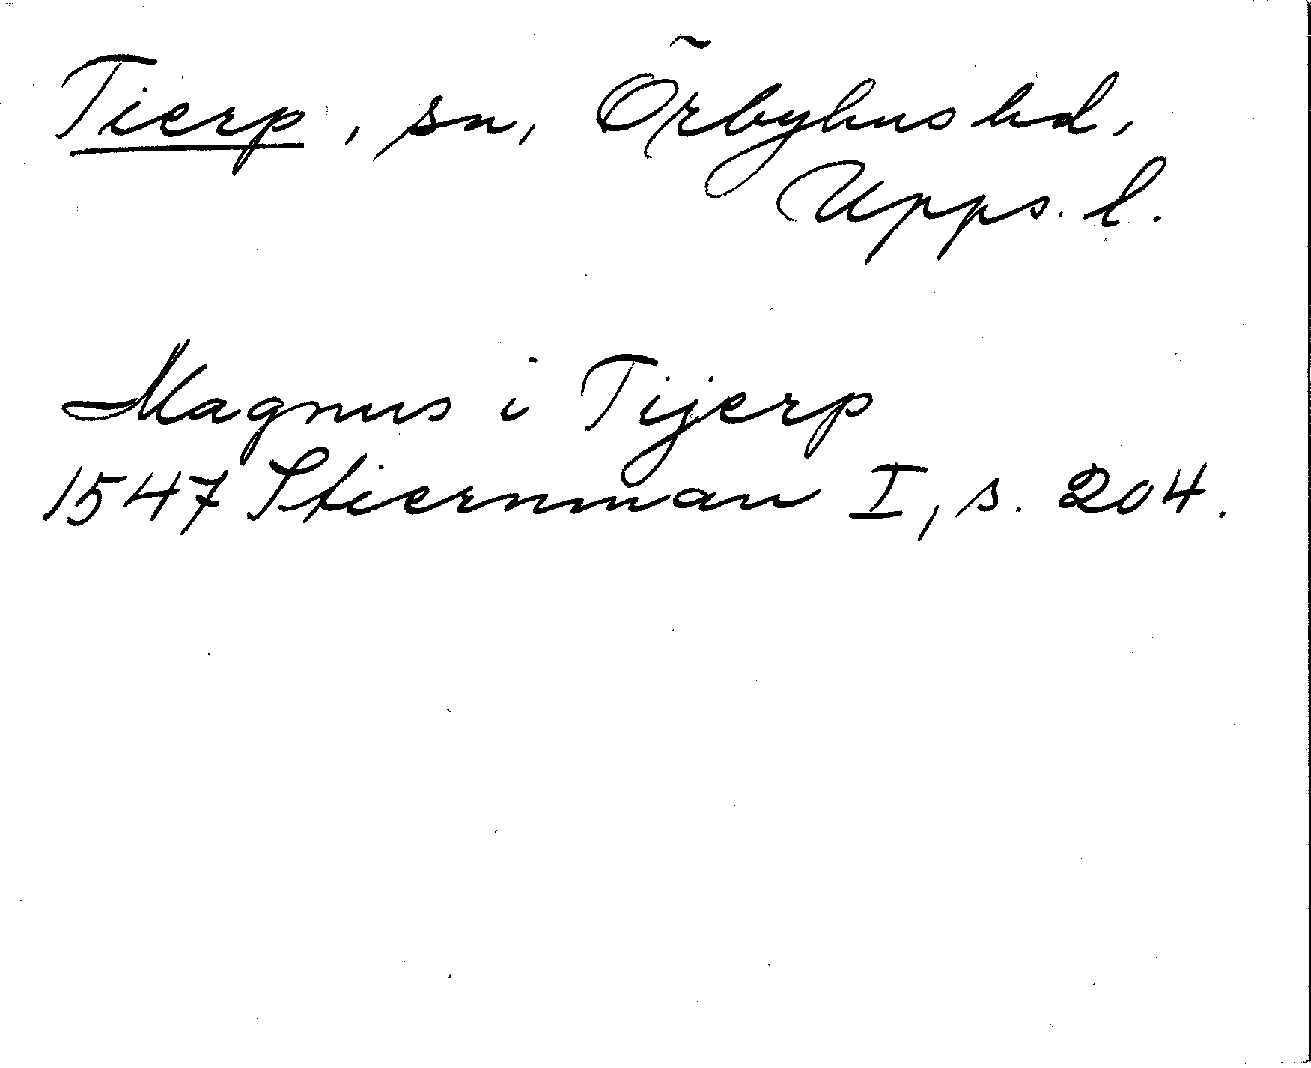 Tierp, sn, Örbyhus hd,
Upps. l.
Magnus i Tijerp
1547 Stiernman I, s. 204.